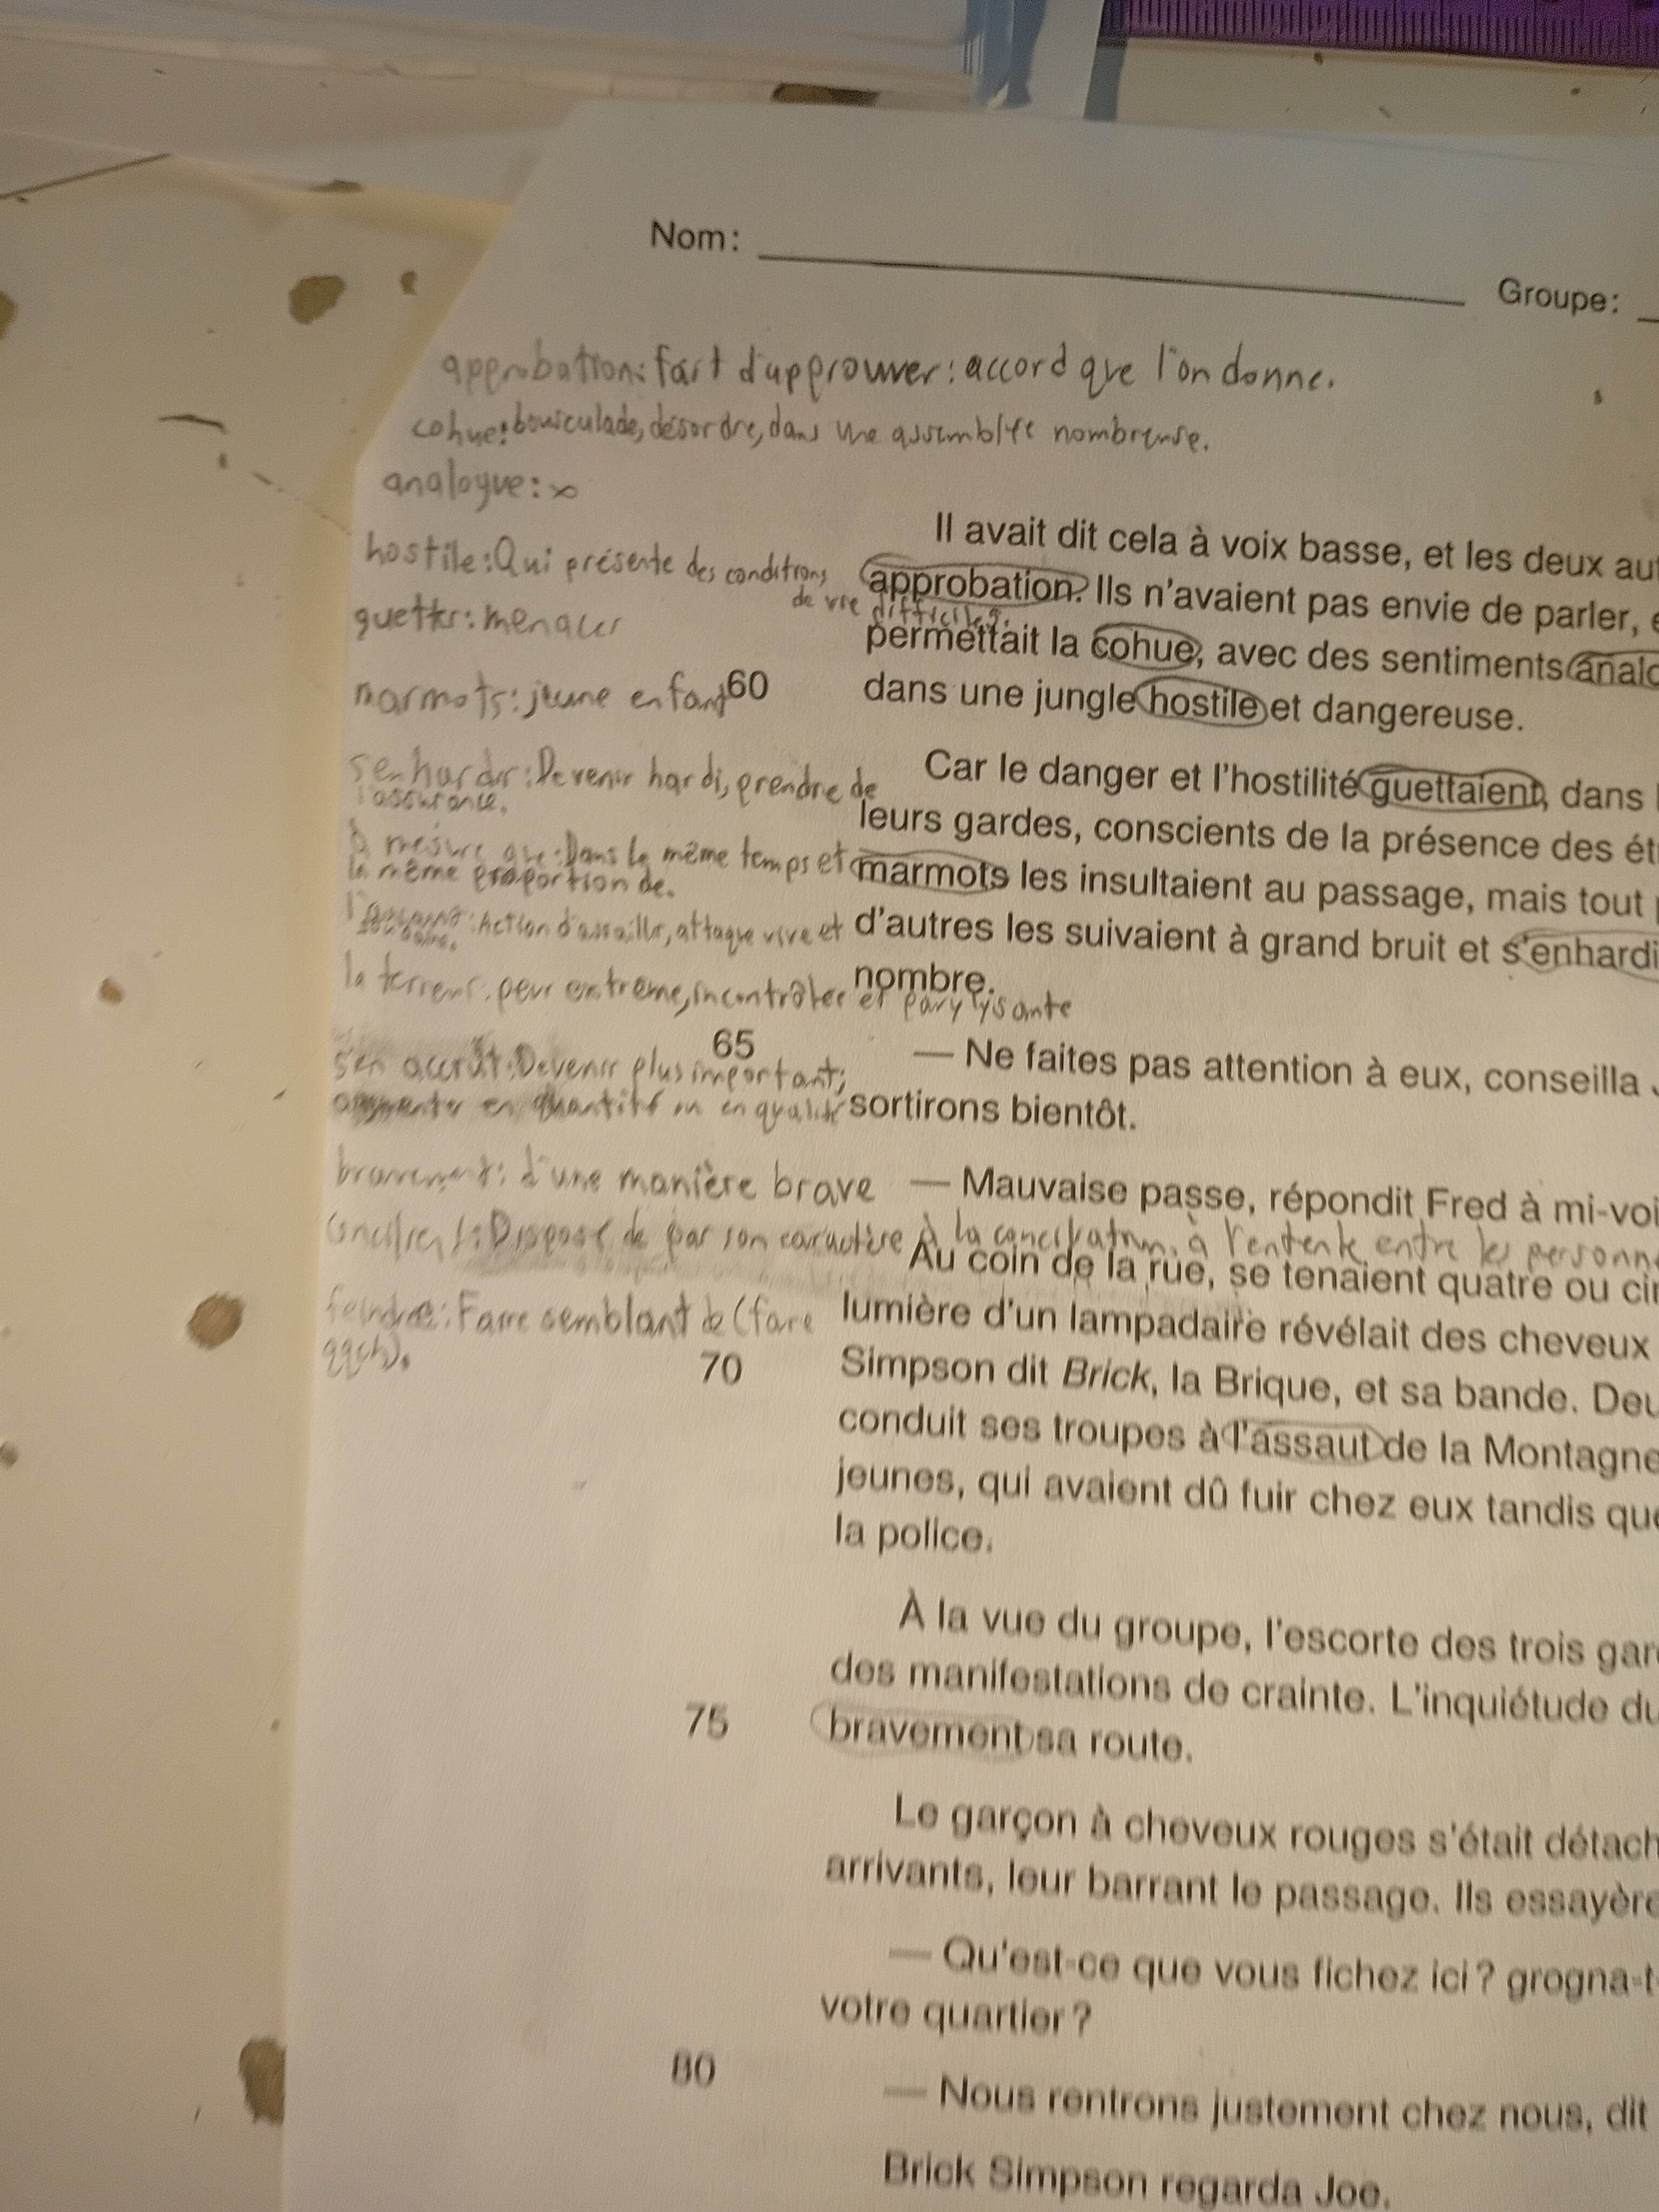 Nom: Groupe:
approbation: fait d'approuver: accord que l'on donne.
cohue: bousculade, désordre, dans une assemblée nombreuse.
analogue: ∞
hostile: Qui présente des conditions
de vie difficiles.
guetter: menacer
marmots: jeune enfant
s'enhardir: Devenir hardi, prendre de
l'assurance.
à mesure que: Dans le même temps et
la même proportion de.
l'assaut: Action d'assaillir, attaque vive et
soudaine.
la terreur: peur extrême, incontrôlée et parylysante
s'en accrût: Devenir plus important;
augmenter en quantité ou en qualité
bravement: d'une manière brave
Disposé de par son caractère à la conciliation, à l'entente entre les personn
feindre: Faire semblant de (faire
qqch).
Il avait dit cela à voix basse, et les deux au
approbation. Ils n'avaient pas envie de parler,
permettait la cohue, avec des sentiments analo
60 dans une jungle hostile et dangereuse.
Car le danger et l'hostilité guettaient, dans
leurs gardes, conscients de la présence des ét
marmots les insultaient au passage, mais tout
d'autres les suivaient à grand bruit et s'enhardi
nombre.
65 — Ne faites pas attention à eux, conseilla
sortirons bientôt.
— Mauvaise passe, répondit Fred à mi-voi
Au coin de la rue, se tenaient quatre ou cin
lumière d'un lampadaire révélait des cheveux
70 Simpson dit Brick, la Brique, et sa bande. Deu
conduit ses troupes à l'assaut de la Montagne
jeunes, qui avaient dû fuir chez eux tandis que
la police.
À la vue du groupe, l'escorte des trois gar
des manifestations de crainte. L'inquiétude du
75 bravement sa route.
Le garçon à cheveux rouges s'était détach
arrivants, leur barrant le passage. Ils essayère
— Qu'est-ce que vous fichez ici ? grogna-t
votre quartier ?
80 — Nous rentrons justement chez nous, dit
Brick Simpson regarda Joe.